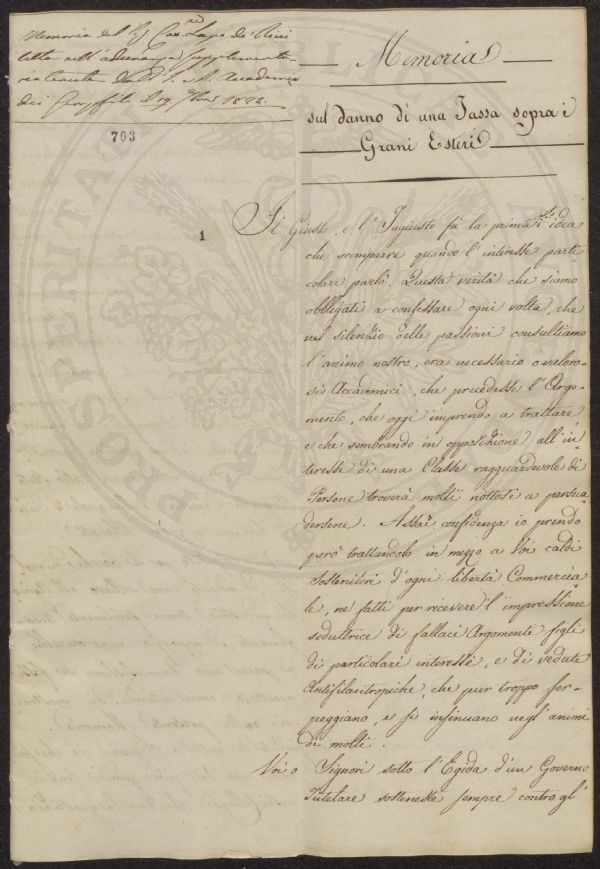 Memoria del Sig. Cav.re Lapo de' Ricci
letta nell'adunanza supplementa-
ria tenuta dalla I. e R. Accademia
dei Georgofili 1824.
703
Memoria
sul danno di una Tassa sopra i
Grani Esteri
1
Il Giusto, e l'Ingiusto fù la prima idea
che scomparve quando l'interesse parti
colare parlò. Questa verità che siamo
obbligati a confessare ogni volta, che
nel silenzio delle passioni consultiamo
l'animo nostro, era necessario o valoro-
si Accademici, che precedesse l'Argo-
mento, che oggi imprendo a trattare
e che sembrando in opposizione all'in
teresse di una Classe ragguardevole di
Persone troverà molti ritrosi a persua
dersene. Assai confidenza io prendo
però trattandolo in mezzo a Voi caldi
sostenitori d'ogni libertà Commercia
le, ne fatti per ricevere l'impressione
seduttrice di fallaci Argomenti figli
di particolari interessi, e di vedute
Antifilantropiche, che pur troppo ser-
peggiano, e si insinuano negl'animi
di molti.
Voi o Signori sotto l'Egida d'un Governo
Tutelare sosteneste sempre contro gl'
PROSPERITATI PUBLICAE AUGENDAE